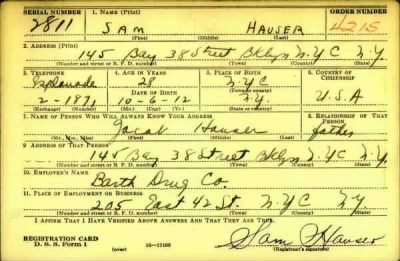 SERIAL NUMBER 1. NAME (Print) ORDER NUMBER
2811 SAM HAUSER 4215
(First) (Middle) (Last)
2. ADDRESS (Print)
145 Bay 38 Street Bklyn NYC N.Y.
(Number and street or R. F. D. number) (Town) (County) (State)
3. TELEPHONE 4. AGE IN YEARS 5. PLACE OF BIRTH 6. COUNTRY OF CITIZENSHIP
Esplanade 28 NYC
DATE OF BIRTH (Town or county)
2-1871 10-6-12 N.Y. U.S.A
(Exchange) (Number) (Mo.) (Day) (Yr.) (State or country)
7. NAME OF PERSON WHO WILL ALWAYS KNOW YOUR ADDRESS 8. RELATIONSHIP OF THAT PERSON
Jacob Hauser father
(Mr., Mrs., Miss) (First) (Middle) (Last)
9. ADDRESS OF THAT PERSON
145 Bay 38 Street Bklyn NYC N.Y.
(Number and street or R. F. D. number) (Town) (County) (State)
10. EMPLOYER'S NAME
Barth Drug Co.
11. PLACE OF EMPLOYMENT OR BUSINESS
205 East 42 St. NYC N.Y.
(Number and street or R. F. D. number) (Town) (County) (State)
I AFFIRM THAT I HAVE VERIFIED ABOVE ANSWERS AND THAT THEY ARE TRUE.
REGISTRATION CARD
D. S. S. Form 1 (over) 16-17105 Sam Hauser
(Registrant's signature)